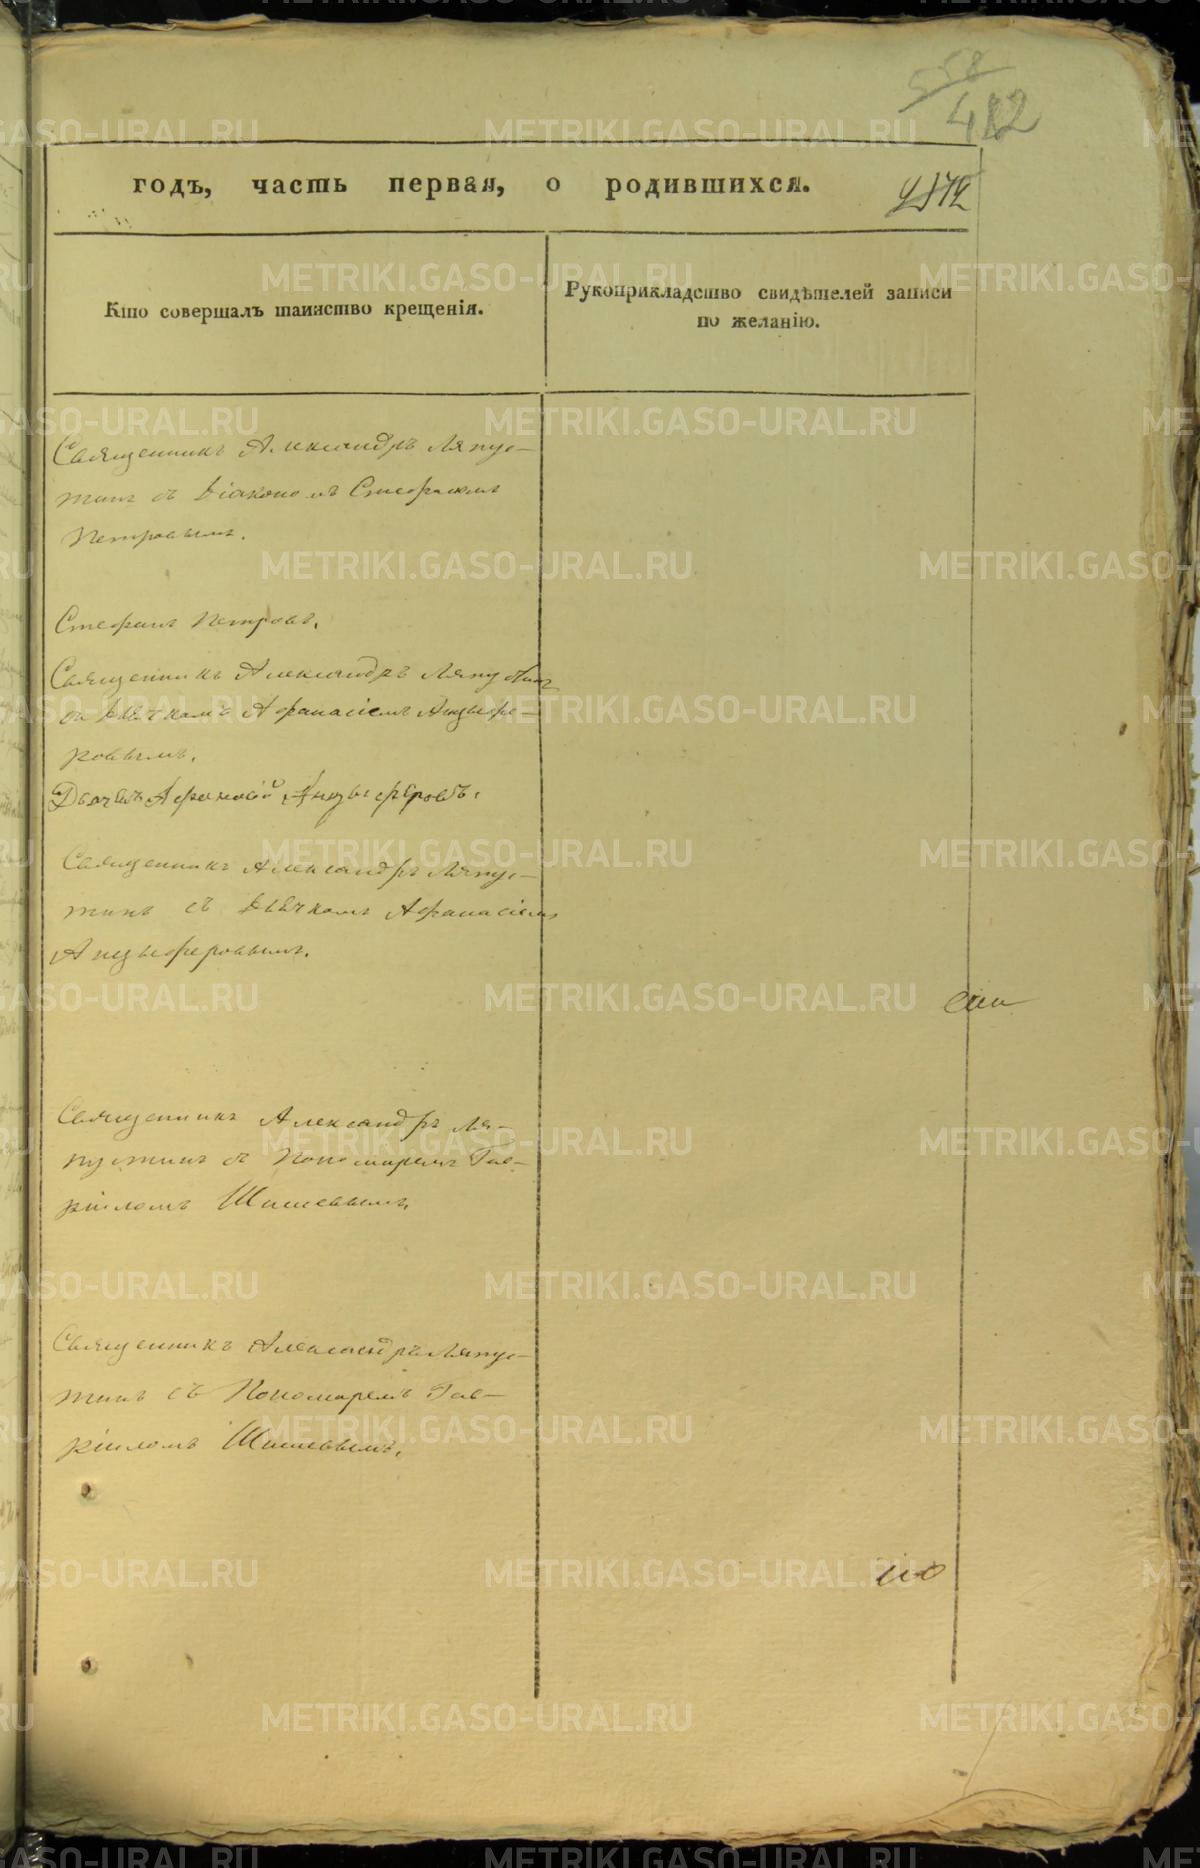 558
482
годъ, часть первая, о родившихся.
Кто совершалъ таинство крещенія.
Рукоприкладство свидѣтелей записи
по желанію.
Священникъ Александръ Ляпус-
тинъ съ Діакономъ Стефаномъ
Петровымъ.
Стефанъ Петровъ.
Священникъ Александръ Ляпустинъ
съ Дьячкомъ Афанасіемъ Анцыфе-
ровымъ.
Дьячекъ Афанасій Анцыферовъ.
Священникъ Александръ Ляпус-
тинъ съ Дьячкомъ Афанасіемъ
Анцыферовымъ.
Священникъ Александръ Ля-
пустинъ съ Пономаремъ Гав-
ріиломъ Шишевымъ.
Священникъ Александръ Ляпус-
тинъ съ Пономаремъ Гав-
ріиломъ Шишевымъ.
METRIKI.GASO-URAL.RU